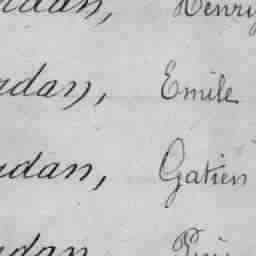 rdan, Henry
rdan, Emile
rdan, Gatien
rdan,